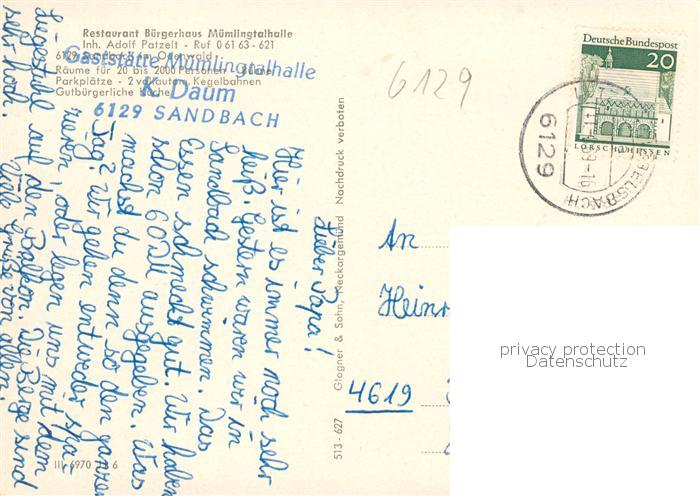 Restaurant Bürgerhaus Mümlingtalhalle
Inh. Adolf Patzelt - Ruf 0 61 63 - 621
6129 Sandbach im Odenwald
Räume für 20 bis 2000 Personen - Bühne
Parkplätze - 2 vollautom. Kegelbahnen
Gutbürgerliche Küche
Gaststätte Mümlingtalhalle
K. Daum
6129 SANDBACH
6129
Deutsche Bundespost
20
LORSCH/HESSEN
6129
Lieber Papa!
Hier ist es immer noch sehr
heiß. Gestern waren wir in
Sandbach schwimmen. Das
Essen schmeckt gut. Wir haben
schon 60 DM ausgegeben. Was
machst du denn so den ganzen
Tag? Wir gehen entweder spa-
zieren, oder legen uns mit dem
Liegestuhl auf den Balkon. Die Berge sind
sehr hoch. Viele Grüße von allen.
513 - 627 Glogner & Sohn, Neckargemünd Nachdruck verboten
An
Heinr
4619
privacy protection
Datenschutz
III 6970 13 6